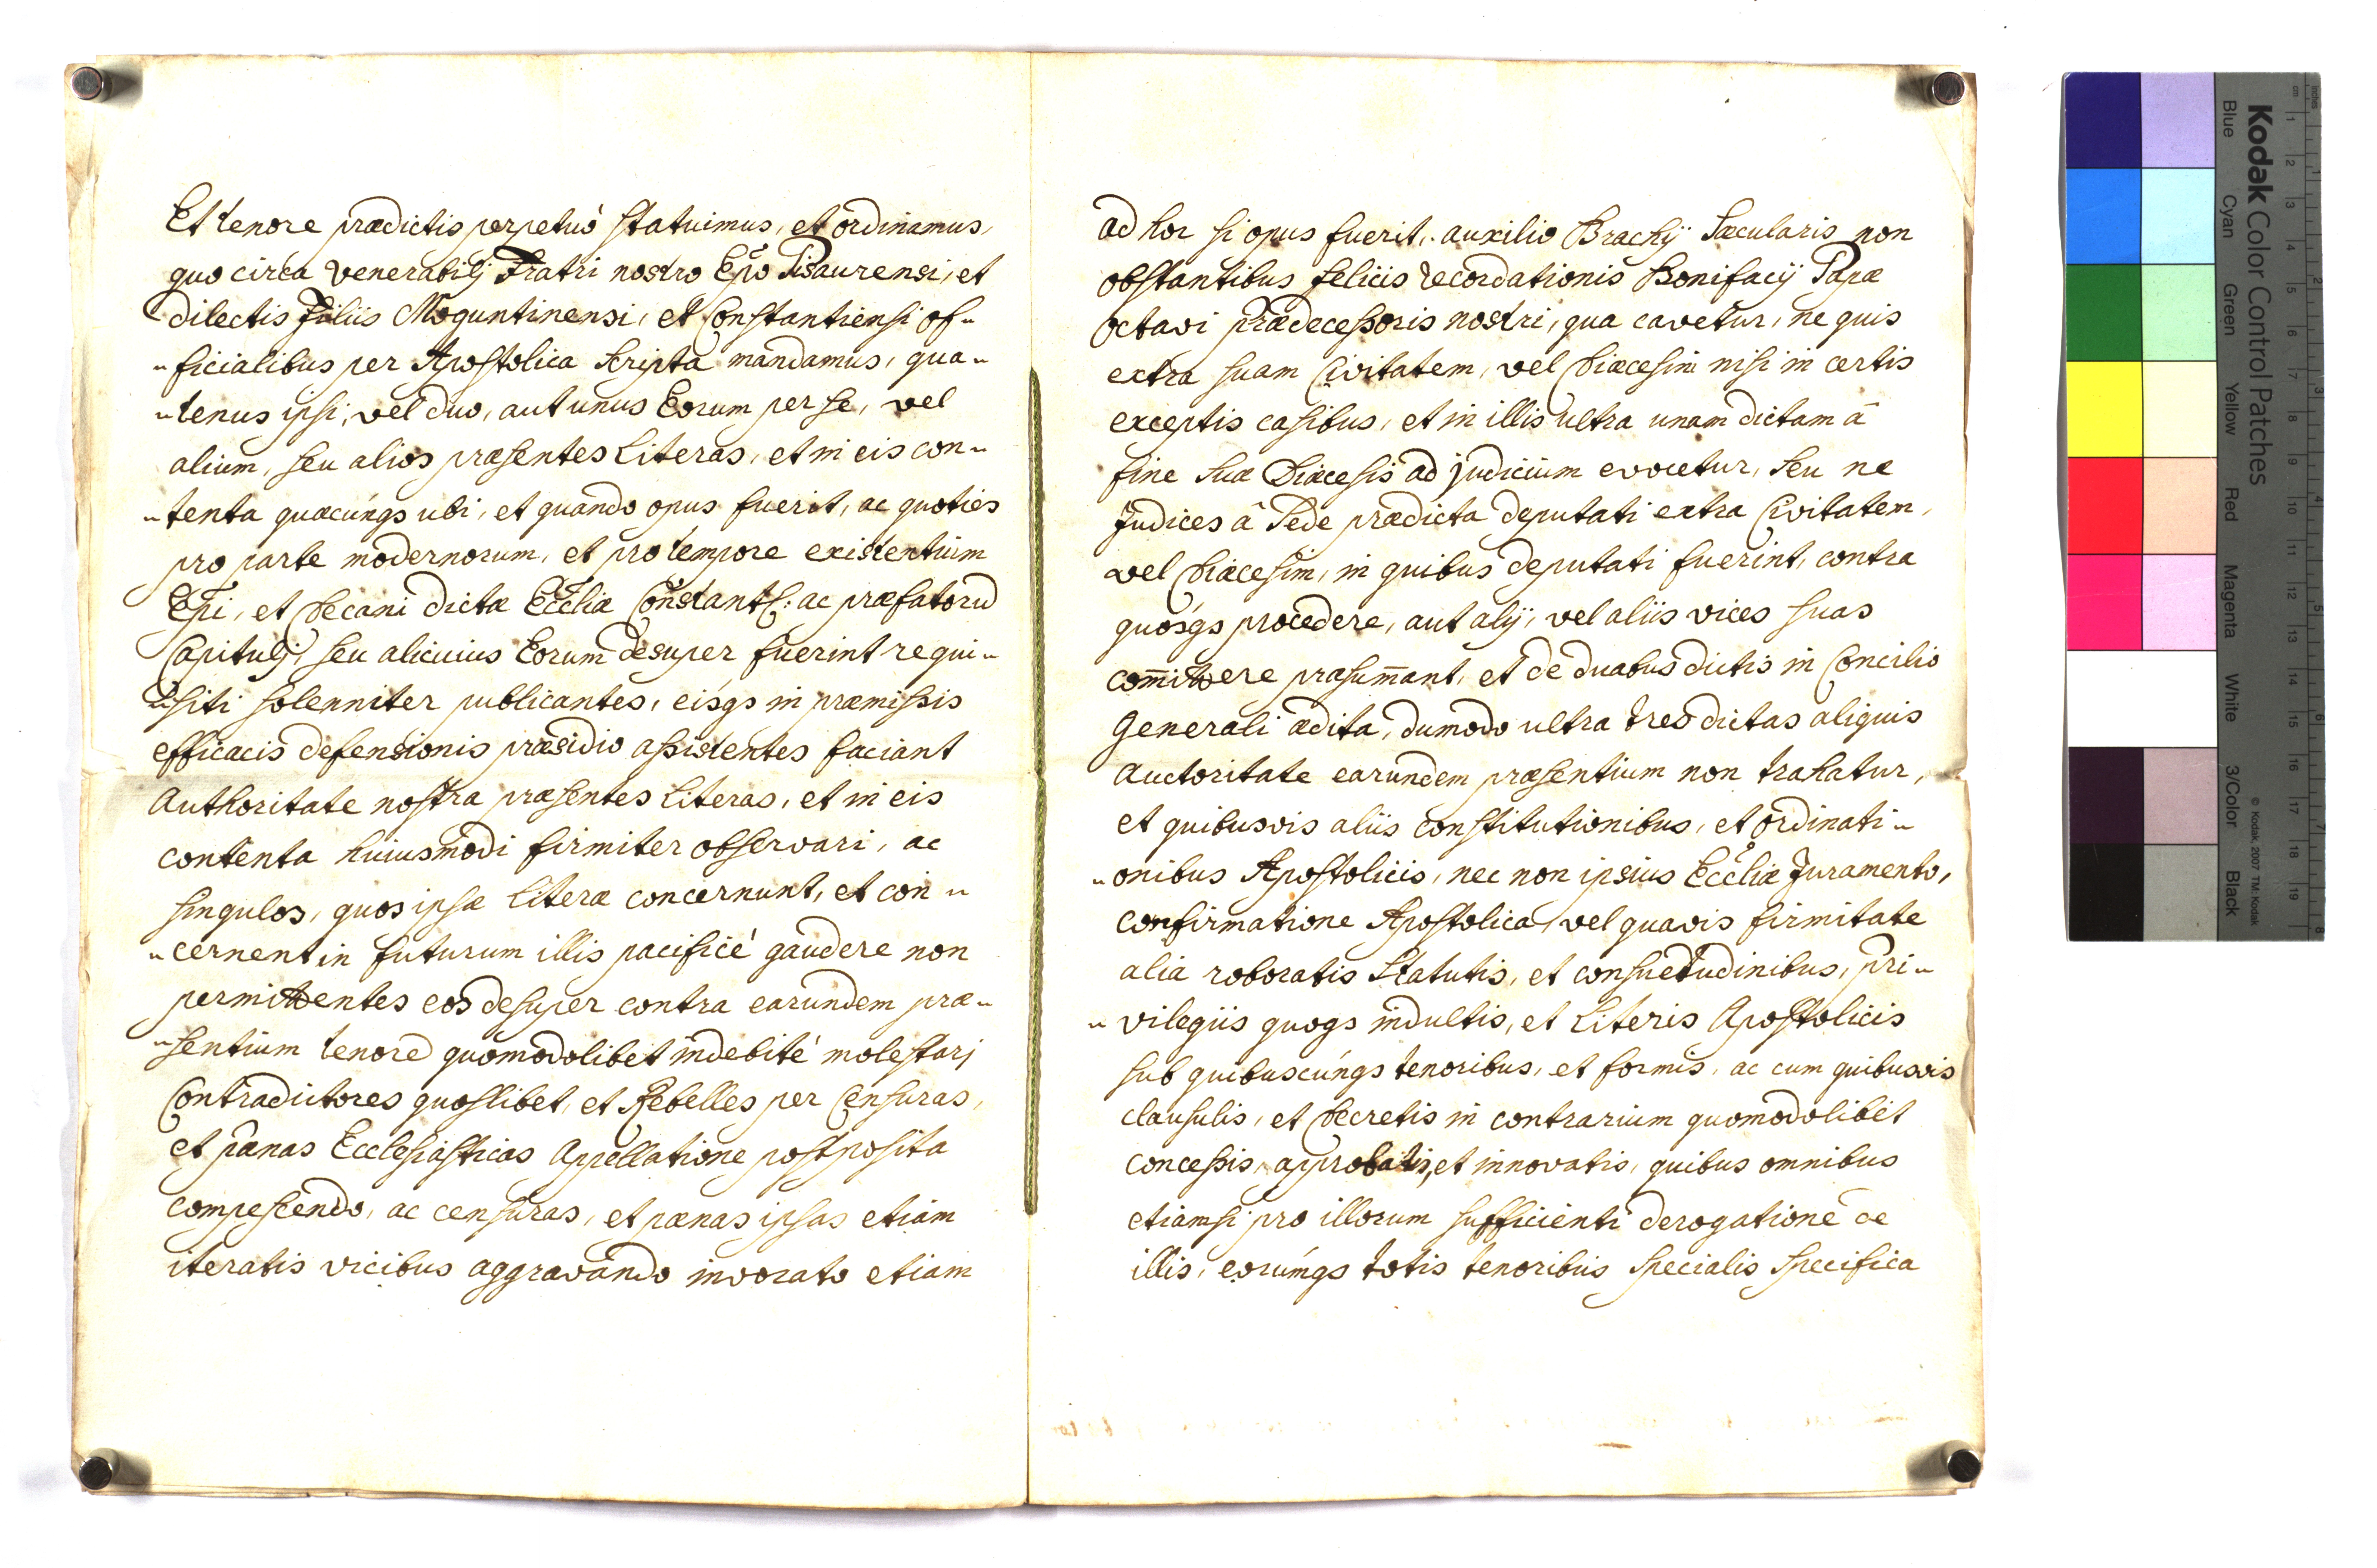 Et tenore prædictis perpetuò statuimus, et ordinamus,
quo circa venerabilj Fratri nostro Epo Pisaurensi, et
dilectis Filiis Moguntinensi, et Constantiensi of-
-ficialibus per Apostolica scripta mandamus, qua-
-tenus ipsi, vel duo, aut unus Eorum per se, vel
alium, seu alios præsentes Literas, et in eis con-
-tenta quæcúnqs ubi, et quando opus fuerit, ac quoties
pro parte modernorum, et pro tempore existentium
Epi, et Decani dictæ Eccliæ Constant: ac præfatorum
Capitulj, seu alicuius Eorum desuper fuerint requi-
-siti solenniter publicantes, eisqs in præmissis
efficacis defensionis præsidio assistentes faciant
Authoritate nostra præsentes Literas, et in eis
contenta huiusmodi firmiter observari, ac
singulos, quos ipsæ Literæ concernunt, et con-
-cernent in futurum illis pacificè gaudere non
permittentes eos desuper contra earundem præ-
-sentium tenore quomodolibet indebitè molestarj
Contradictores quoslibet, et Rebelles per Censuras,
et pænas Ecclesiasticas Appellatione postposita
compescendo, ac censuras, et pænas ipsas etiam
iteratis vicibus aggravando invocato etiam
ad hoc si opus fuerit, auxilio Brachÿ Sæcularis non
obstantibus felicis recordationis Bonifacÿ Papæ
octavi prædecessoris nostri, qua cavetur, ne quis
extra suam Civitatem, vel Diæcesim nisi in certis
exceptis casibus, et in illis ultra unam dictam â
fine suæ Diæcesis ad judicium evocetur, seu ne
Judices â Sede prædicta deputati extra Civitatem,
vel Diæcesim, in quibus deputati fuerint, contra
quosqs procedere, aut alÿ, vel aliis vices suas
com̄ittere præsum̄ant, et de duabus dictis in Concilio
Generali ædita, dumodo ultra tres dictas aliquis
Auctoritate earundem præsentium non trahatur,
et quibusvis aliis constitutionibus, et ordinati-
-onibus Apostolicis, nec non ipsius Eccliæ Juramento,
confirmatione Apostolica, vel quavis firmitate
alia roboratis Statutis, et consuetudinibus, pri-
-vilegiis quoqs indultis, et Literis Apostolicis
sub quibuscúnqs tenoribus, et formis, ac cum quibusvis
clausulis, et Decretis in contrarium quomodolibet
concessis, approbatis, et innovatis, quibus omnibus
etiamsi pro illorum sufficienti derogatione de
illis, eorúmqs totis tenoribus specialis specifica
Kodak Color Control Patches
Blue Cyan Green Yellow Red Magenta White 3/Color Black
© Kodak, 2007 TM: Kodak
inches 1 2 3 4 5 6 7 8
cm 1 2 3 4 5 6 7 8 9 10 11 12 13 14 15 16 17 18 19